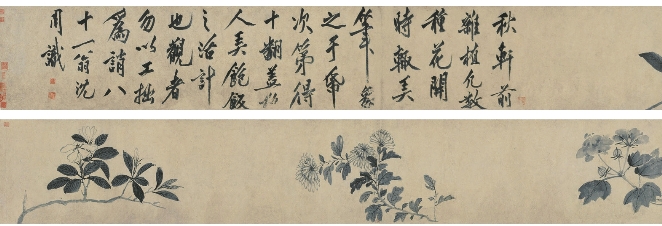 秋軒前
雜植凡數
種花開
時輒弄
筆象
之于帋
次第得
十翻蓋
人飽飯
之活計
也觀者
勿以工拙
為誚八
十一翁沈
周識